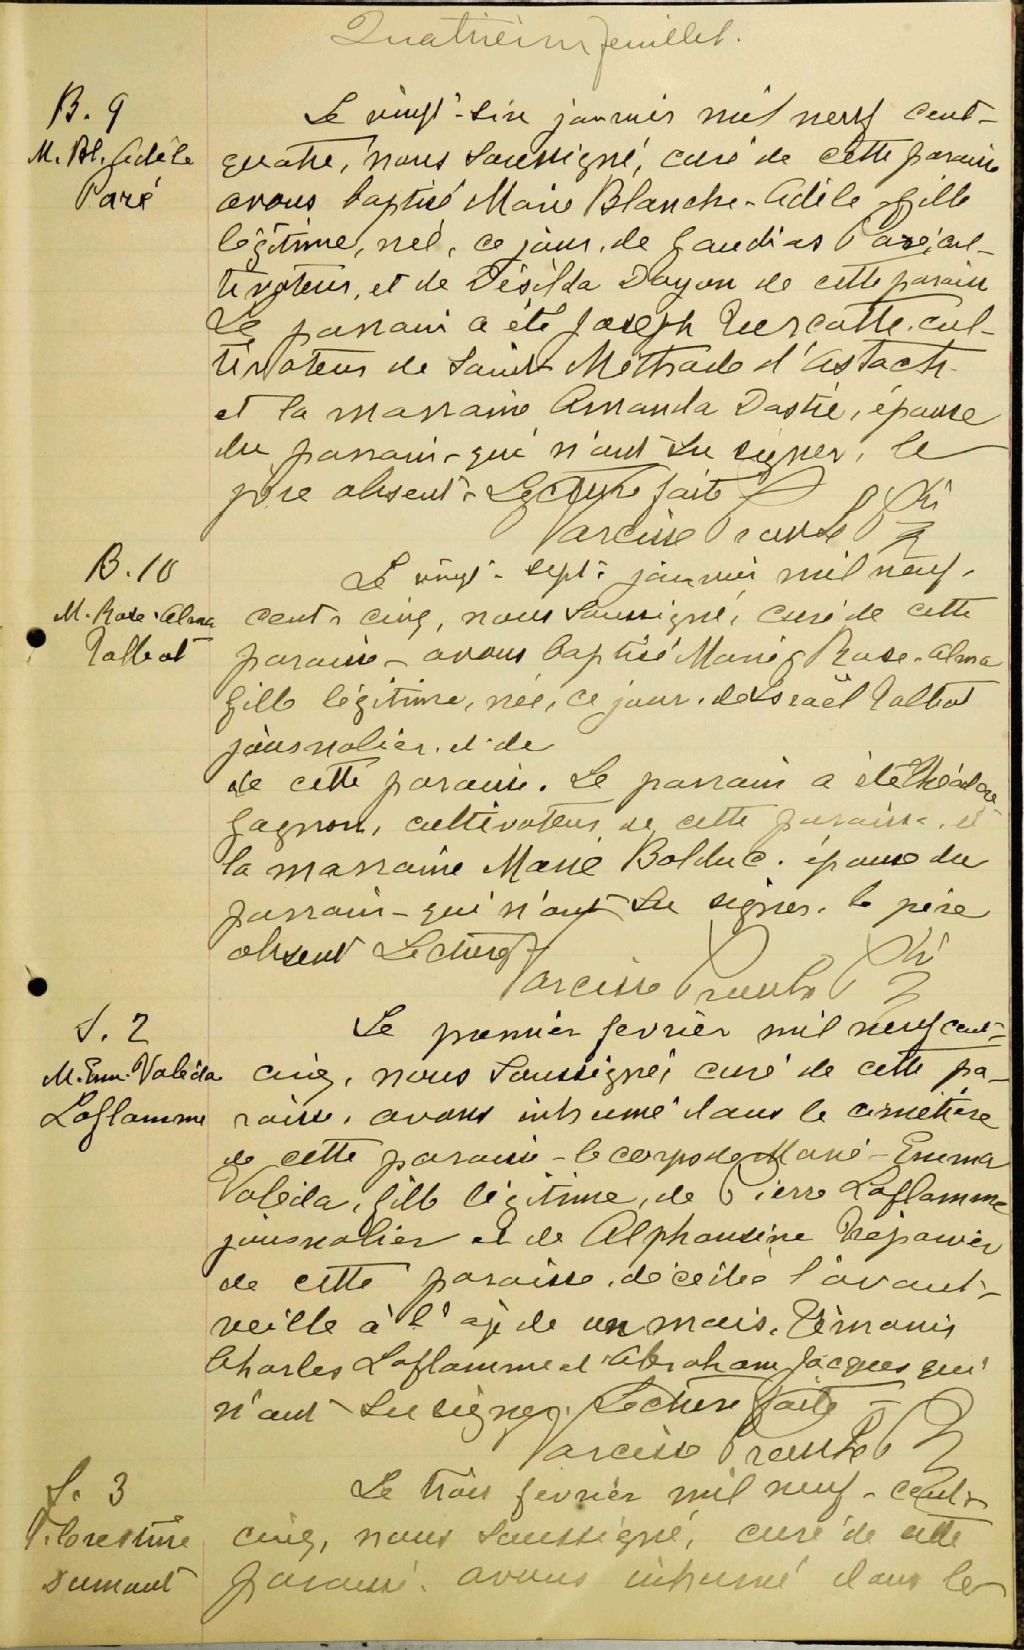 Quatrième feuillet.
B. 9
M. Bl. Adèle
Paré
Le vingt-six janvier mil neuf cent-
quatre, nous soussigné, curé de cette paroisse
avons baptisé Marie Blanche-Adèle fille
légitime, née, ce jour, de Gaudias Paré, cul-
tivateur, et de Désilda Doyon de cette paroisse
Le parrain a été Joseph Turcotte, cul-
tivateur de Saint Méthode d'
et la marraine Amanda épouse
du parrain - qui n'ont su signer, le
père absent - Lecture faite
Narcisse Proulx Ptr
B. 10
M. Rose-Alma
Talbot
Le vingt-sept janvier mil neuf-
cent cinq, nous soussigné, curé de cette
paroisse - avons baptisé Marie Rose-Alma
fille légitime, née, ce jour, de Israël Talbot
journalier, et de
de cette paroisse. Le parrain a été Théodore
Gagnon, cultivateur de cette paroisse, et
la marraine Marie Bolduc, épouse du
parrain - qui n'ont su signer, le père
absent Lecture f
Narcisse Proulx Ptr
S. 2
M. Em. Valéda
Laflamme
Le premier février mil neuf cent-
cinq, nous soussigné, curé de cette pa-
roisse, avons inhumé dans le cimetière
de cette paroisse - le corps de Marie-Emma
Valéda, fille légitime, de Pierre Laflamme
journalier et de Alphonsine Trépanier
de cette paroisse, décédée l'avant-
veille à l'âge de un mois. Témoins
Charles Laflamme et Abraham Jacques qui
n'ont su signer. Lecture faite
Narcisse Proulx Ptr
S. 3
Florestine
Dumont
Le trois février mil neuf-cent-
cinq, nous soussigné, curé de cette
paroisse, avons inhumé dans le